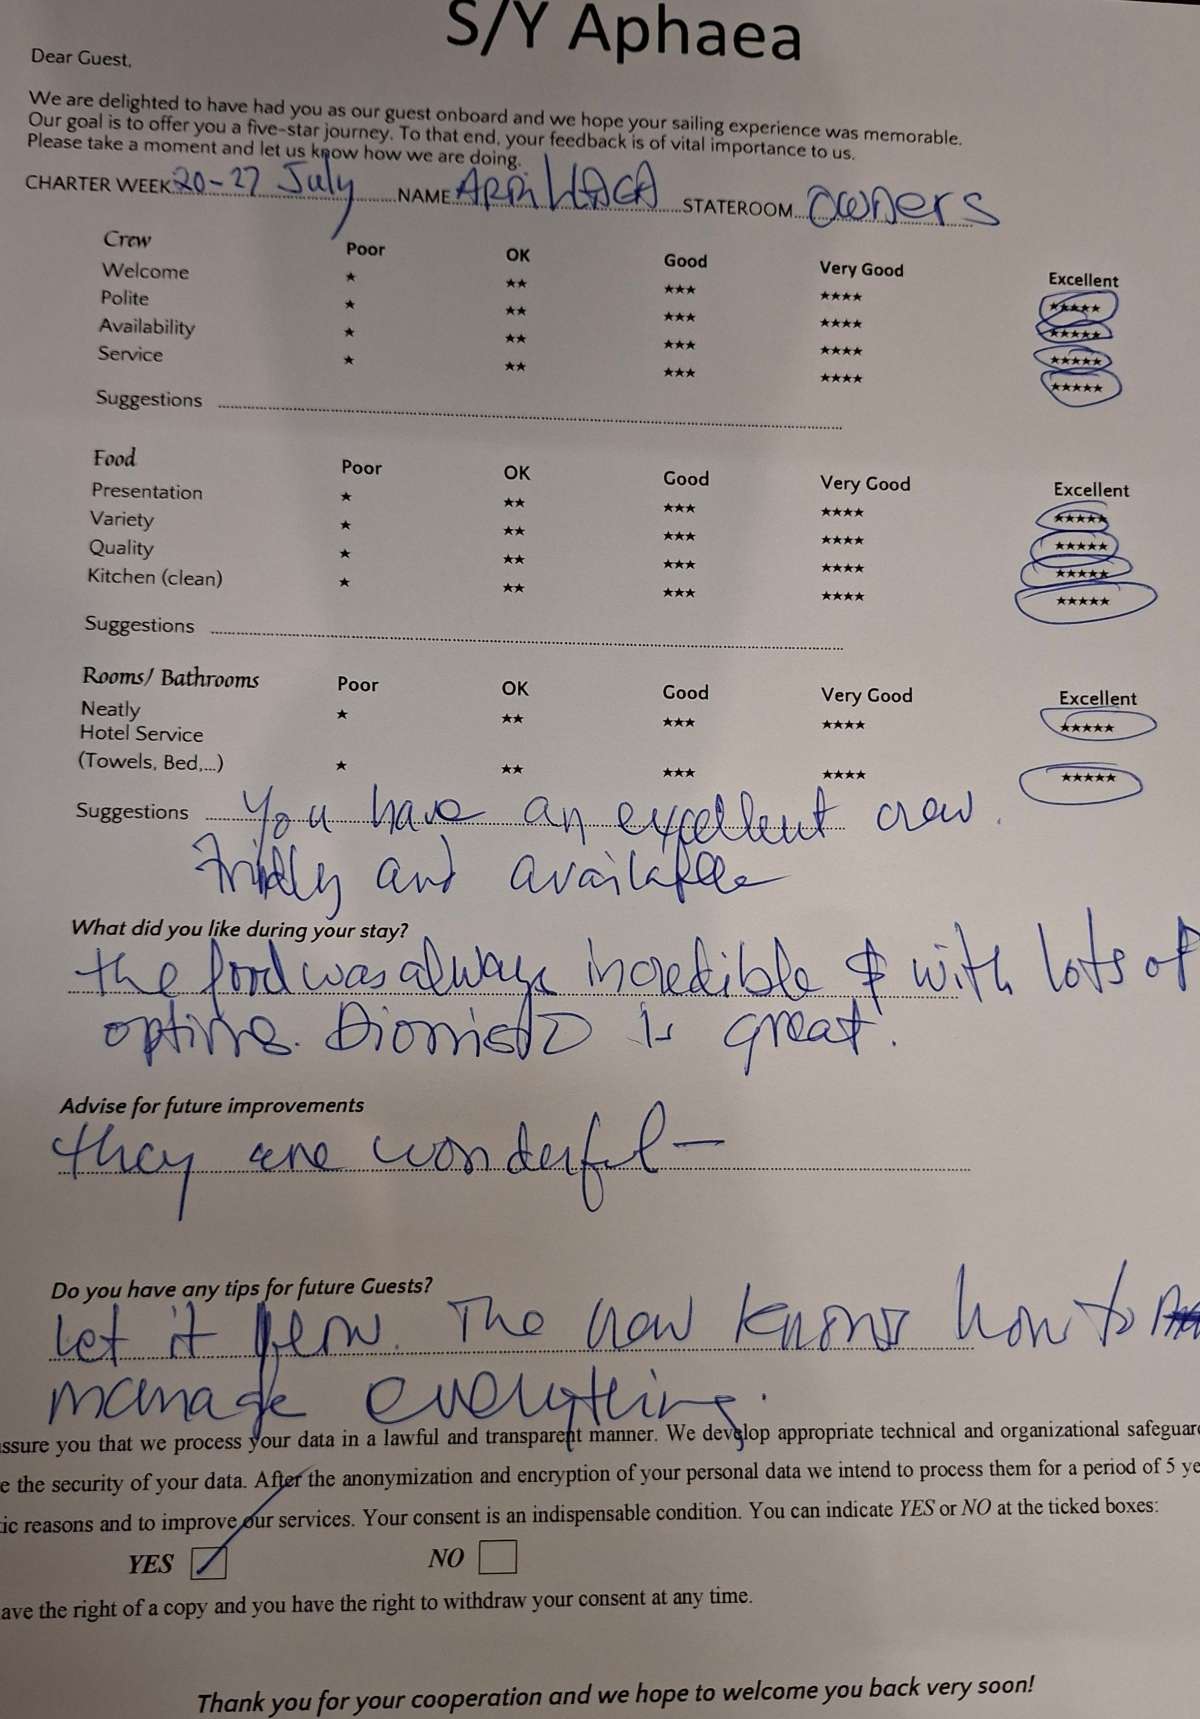 S/Y Aphaea
Dear Guest,
We are delighted to have had you as our guest onboard and we hope your sailing experience was memorable.
Our goal is to offer you a five-star journey. To that end, your feedback is of vital importance to us.
Please take a moment and let us know how we are doing.
CHARTER WEEK 20-27 July NAME STATEROOM owners
Crew Poor OK Good Very Good Excellent
Welcome ★ ★★ ★★★ ★★★★ ★★★★★
Polite ★ ★★ ★★★ ★★★★ ★★★★★
Availability ★ ★★ ★★★ ★★★★ ★★★★★
Service ★ ★★ ★★★ ★★★★ ★★★★★
Suggestions
Food Poor OK Good Very Good Excellent
Presentation ★ ★★ ★★★ ★★★★ ★★★★★
Variety ★ ★★ ★★★ ★★★★ ★★★★★
Quality ★ ★★ ★★★ ★★★★ ★★★★★
Kitchen (clean) ★ ★★ ★★★ ★★★★ ★★★★★
Suggestions
Rooms/ Bathrooms Poor OK Good Very Good Excellent
Neatly ★ ★★ ★★★ ★★★★ ★★★★★
Hotel Service
(Towels, Bed,...) ★ ★★ ★★★ ★★★★ ★★★★★
Suggestions You have an excellent crew.
and available
What did you like during your stay?
the food was always incredible & with lots of
options. is great.
Advise for future improvements
they are wonderful -
Do you have any tips for future Guests?
Let it flow. The crew knows how to
manage everything.
assure you that we process your data in a lawful and transparent manner. We develop appropriate technical and organizational safeguar
e the security of your data. After the anonymization and encryption of your personal data we intend to process them for a period of 5 ye
tic reasons and to improve our services. Your consent is an indispensable condition. You can indicate YES or NO at the ticked boxes:
YES NO
ave the right of a copy and you have the right to withdraw your consent at any time.
Thank you for your cooperation and we hope to welcome you back very soon!